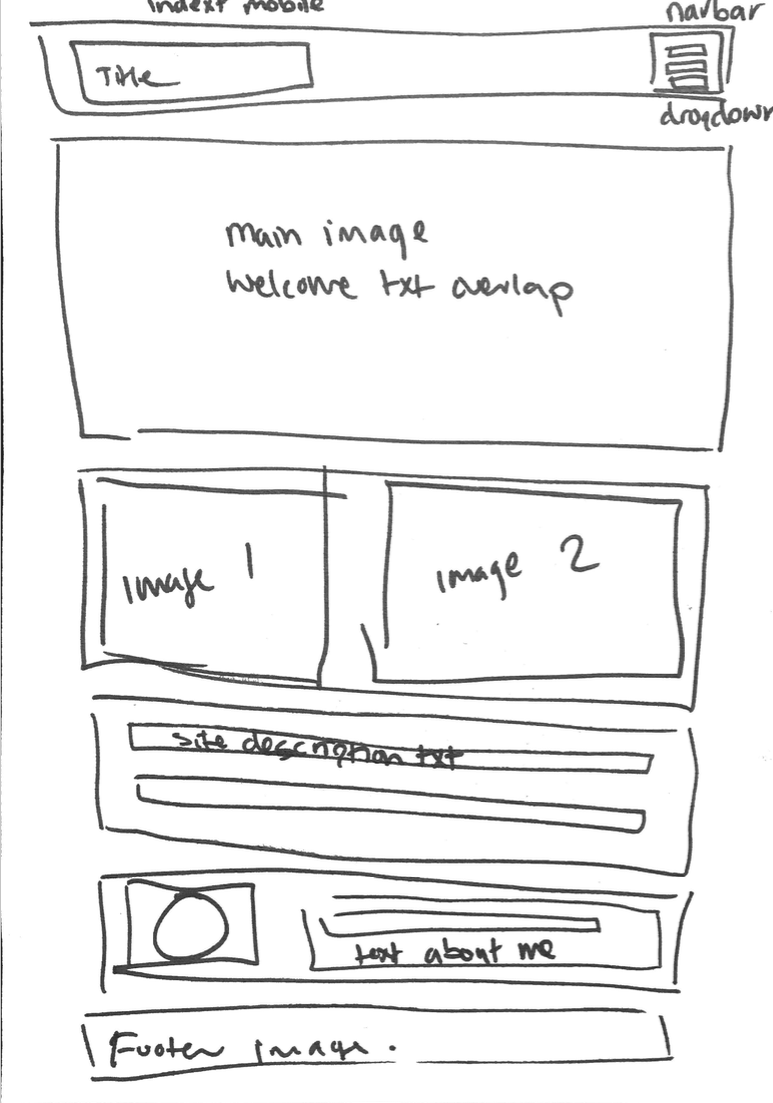 index mobile
navbar
Title
dropdown
main image
welcome txt overlap
image 1
image 2
site description txt
text about me
Footer image.